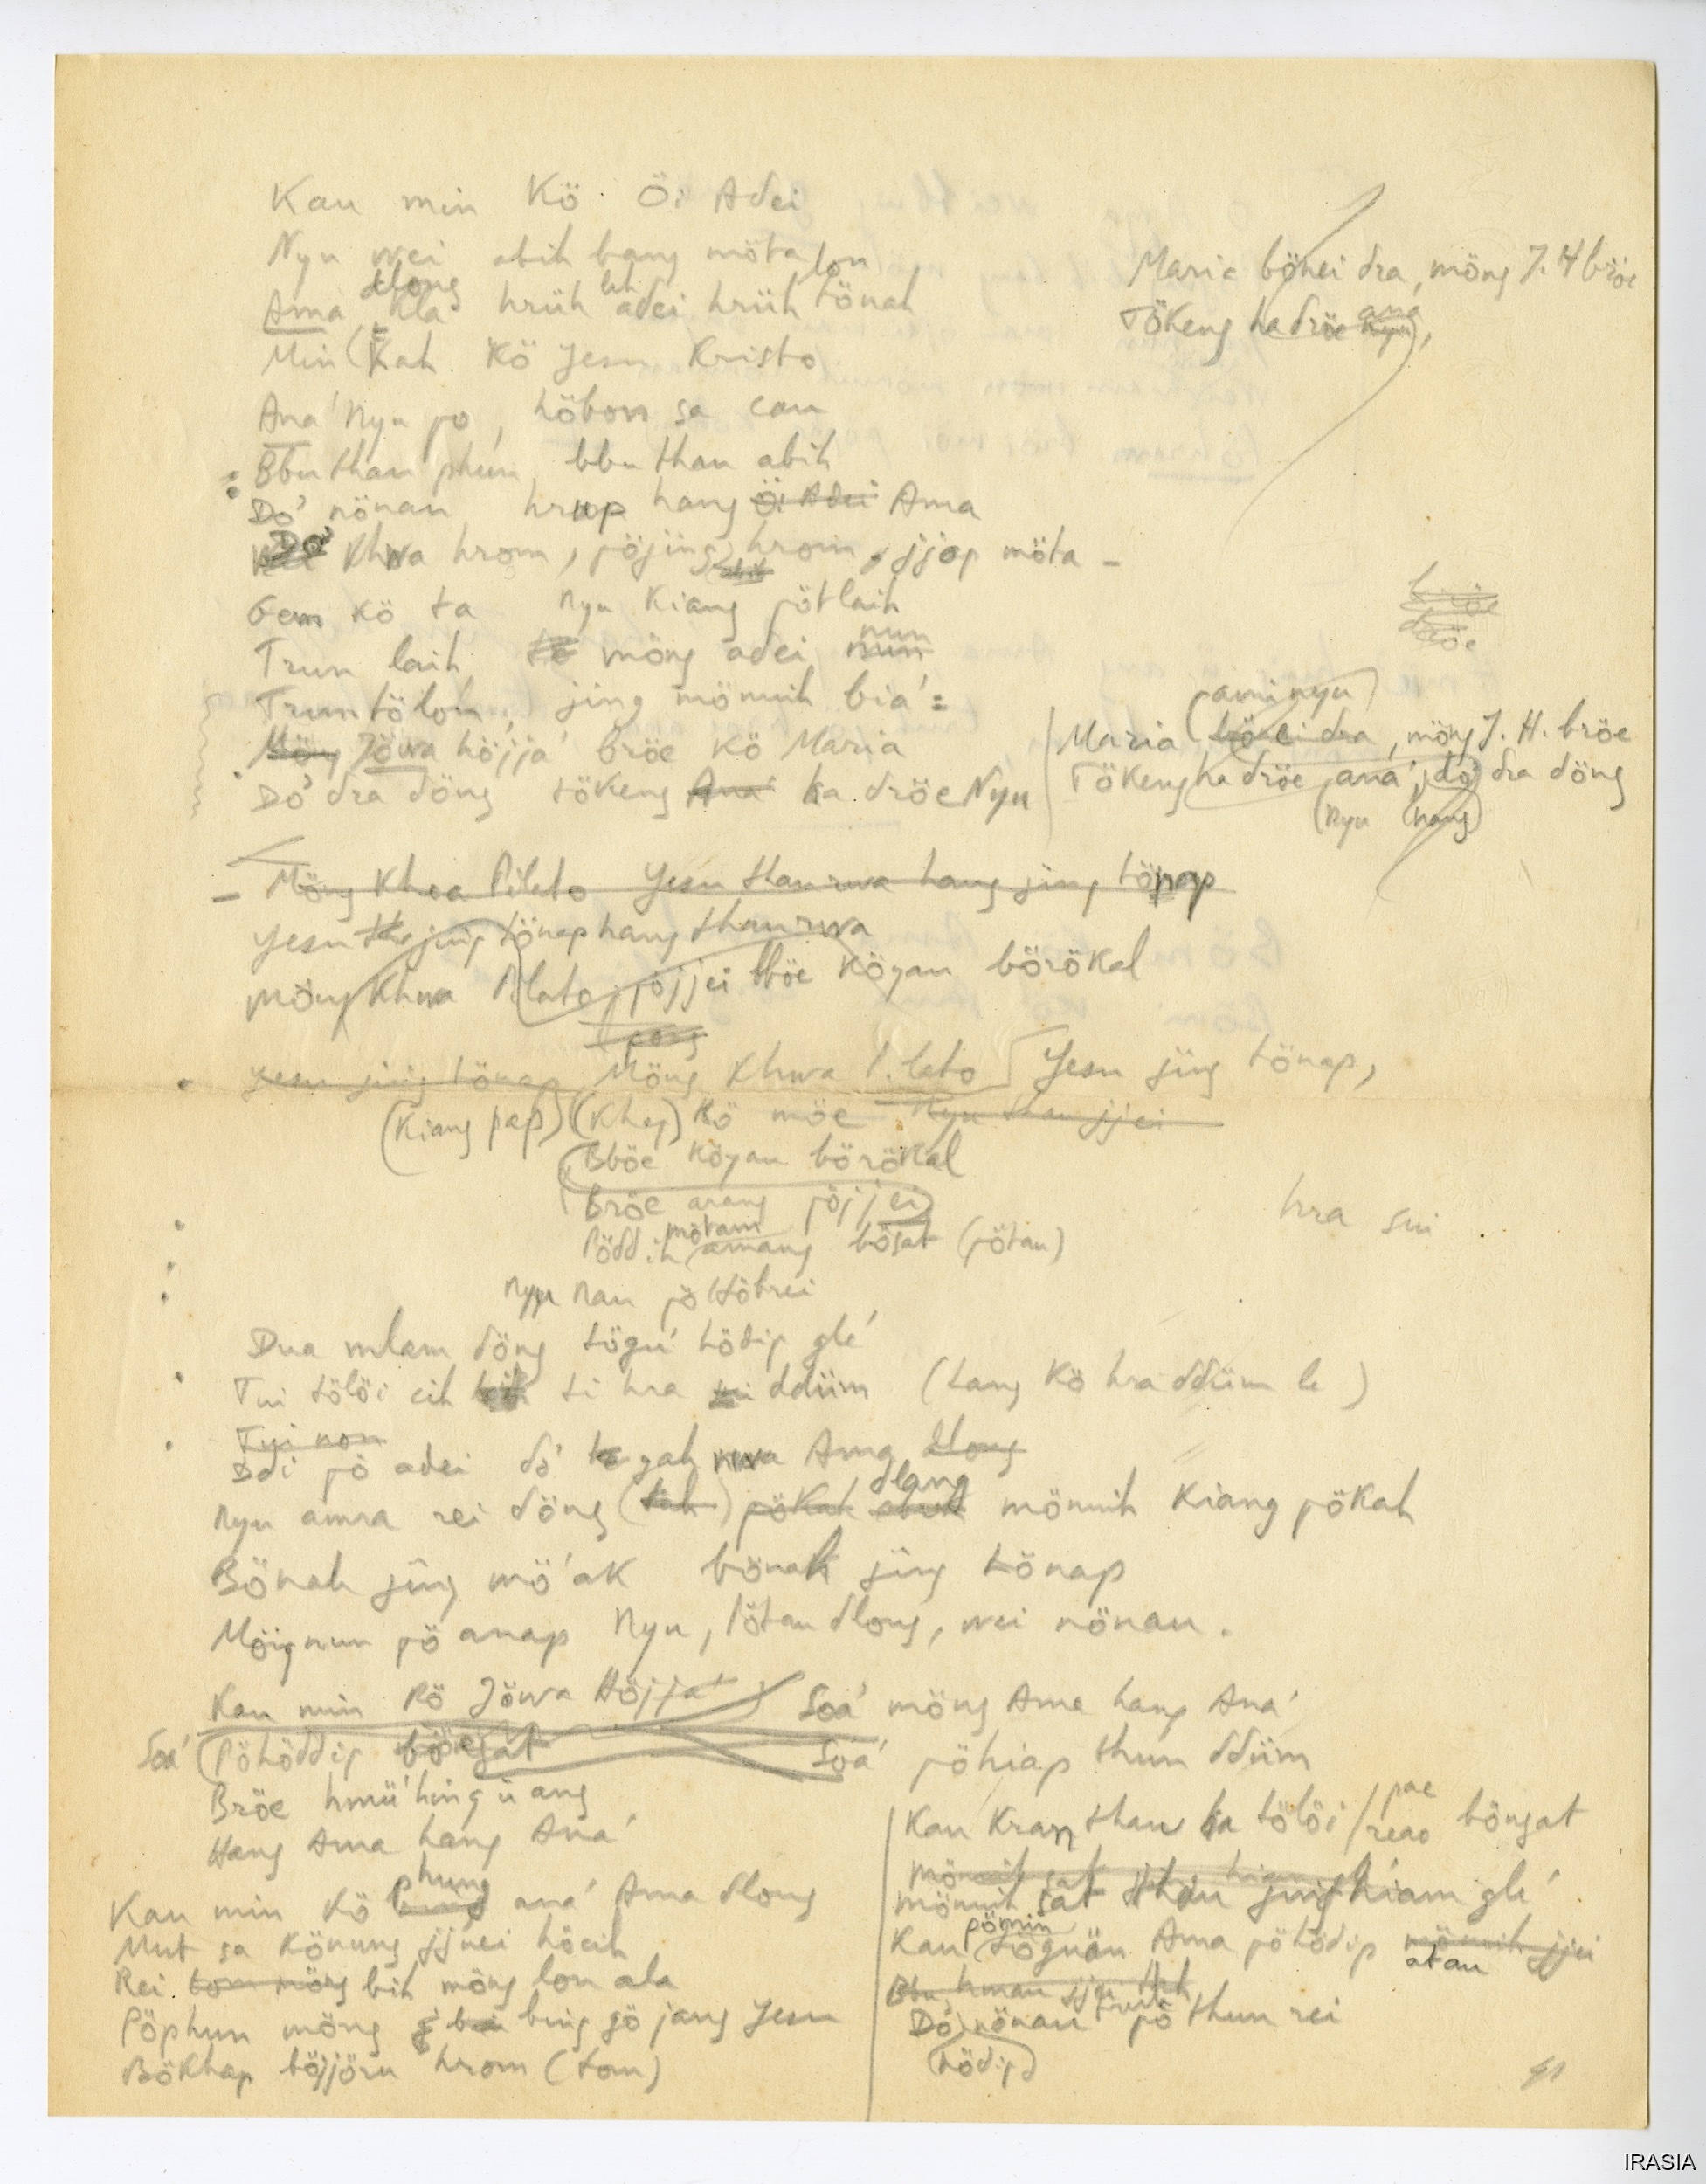 Kau min Kö Öi Adei
Nyu wei abih bang möta lon
dlong leh
Ama Kla hrüh adei hrüh tönah
Min (Kah Kö Yesu Kristo
Ana' Nyu po, höbon sa cau
Bbu thau phun, bbu thau abih
Do' nönau hrup hang Öi Adei Ama
Do' Khwa hrom, pöjing hrom, jjop möta -
Gem kö ta Nyu Kiang pötlaih
Trun laih, möng adei nun
nun
Trun tö lon, jing mönuih bia' =
Möng Jöwa höjja' bröe Kö Maria
Do' dra döng tökeng Ana' ha dröe Nyu
Maria bönei dra, möng J. H bröe
Tökeng ha dröe Nyu, ana
bröe
dröe
(ami nyu)
Maria bönei dra, möng J. H. bröe
Tökeng ha dröe, ana', do' dra döng
(Nyu (hang)
- Möng Khoa Pilato Yesu thau rwa hang jing tönap
Yesu jing tönap hang thau rwa
Möng Khwa Pilato, pöjjei bböe Köyau börökal
pong
Yesu jing tönap Möng Khwa Pilato Yesu jing tönap,
(Kiang pap) (Khep) Kö möe Nyu thau jjei
Bböe Köyau börökal
Bröe arang pöjjei
Pöddih amang bösat (pötau)
mötam
hra sui
Nyu Nau pö htöbrei
Dua mlam döng tögu' hödip glé
Tui tölöi cih ti hra ddüm (tang Kö hra ddüm le)
Tui non
Ddi pö adei dö' gah nwa Ama dlong
Nyu amra rei döng (tah) pökah dlang mönuih Kiang pökah
Bönah jing mö'ak bönah jing tönap
Möig nun pö anap Nyu, Pötau dlong, wei nönau.
Kau min Kö Jöwa Höjja' Soa' möng Ama hang Ana'
Soa' (Pöhöddip böngat Soa' pöhiap thun ddüm
Bröe hmü' hing ü ang
Hang Ama hang Ana'
phung
Kau min Kö ana' Ama dlong
Mut sa Könung jjnei höcih
Rei tom möng bih möng lon ala
Pöphun möng bing gö jang Yesu
Bökhap böjjöru hrom (tom)
Kau Kran thau ha tölöi / pae reao böngat
mönuih sat thau jing hiam glé
pömin
Kau tögüan Ama pöhödip mönuih jjei
atau
Bbu hmau jjei tah
Do' nönau pö thun rei
(hödip)
41
IRASIA